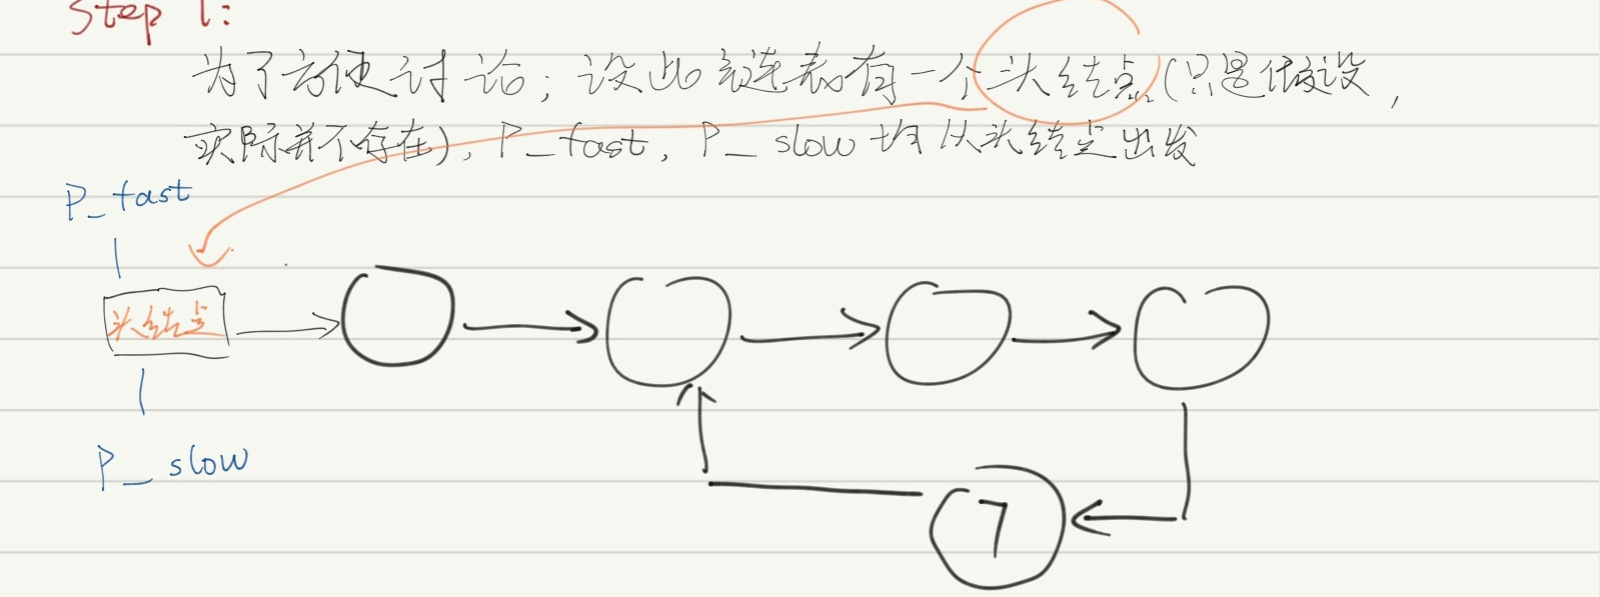 Step 1:
为了方便讨论；设此链表有一个头结点（只是假设，
实际并不存在），P_fast，P_slow均从头结点出发
P_fast
头结点
P_slow
7